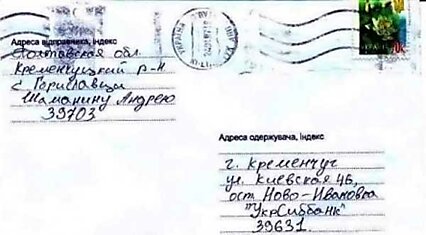 УКРАЇНА
Адреса відправника, індекс
Полтавская обл.
Кременчуцкий р-н
с Гориславци
Шаманину Андрею
39703
Адреса одержувача, індекс
г. Кременчуг
ул. Киевская 4Б,
ост Ново-Ивановка
"УкрСиббанк"
39631.